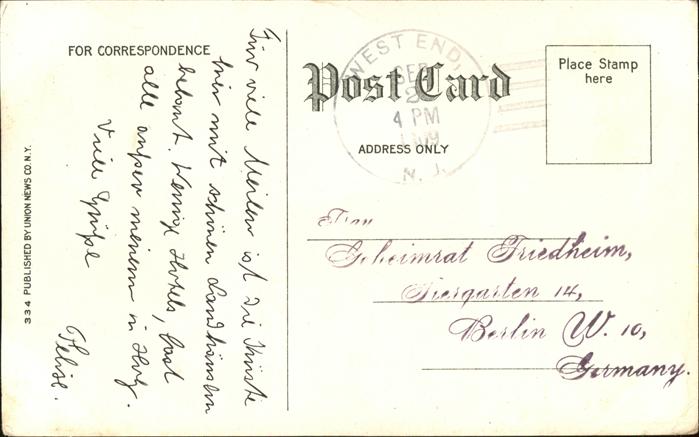 FOR CORRESPONDENCE
Für viele Meilen ist die Küste
hier mit schönen Landhäusern
bebaut. Wenige Hotels, fast
alle ausser meinem in Holz.
Viele Grüsse
Felix.
334 PUBLISHED BY UNION NEWS CO. N.Y.
Post Card
ADDRESS ONLY
WEST END,
SEP
2
4 PM
N. J.
Place Stamp
here
Frau
Geheimrat Friedheim,
Tiergarten 14,
Berlin W. 10,
Germany.